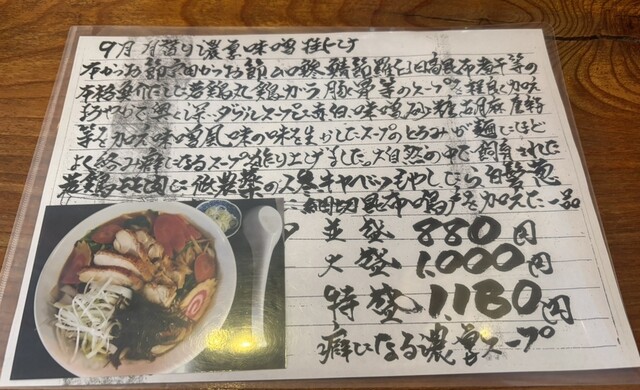 9月 月替り濃厚味噌
本かつお節 宗田かつお節 鯖節 日高昆布煮干等の
本格 だしと若鶏丸鶏ガラ豚骨等のスープを 加え
まろやかで奥く深いダブルスープに赤白味噌砂糖胡麻
等を加え味噌風味の味を生かしたスープのとろみが麺にほど
よく絡み癖になるスープに作り上げました。大自然の中で飼育された
若鶏もも肉に低農薬の人参キャベツもやしにら白髪葱
細切昆布鳴戸を加えた一品
並盛 880円
大盛 1,000円
特盛 1,180円
癖になる濃厚スープ